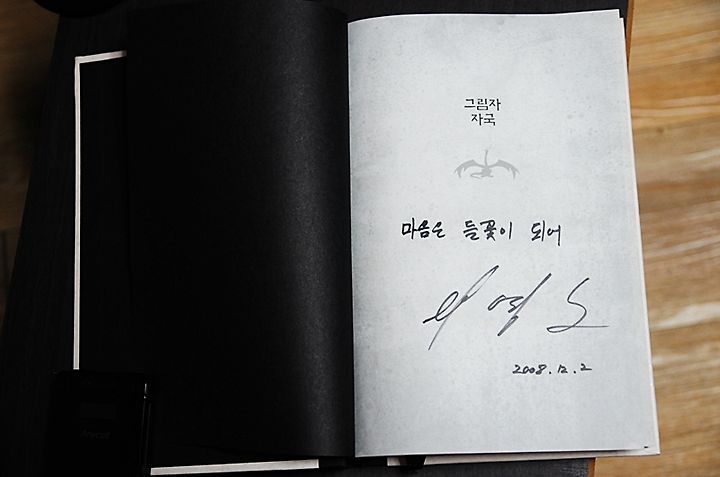 그림자
자국
마음은 들꽃이 되어
이영도
2008.12.2
Anycall